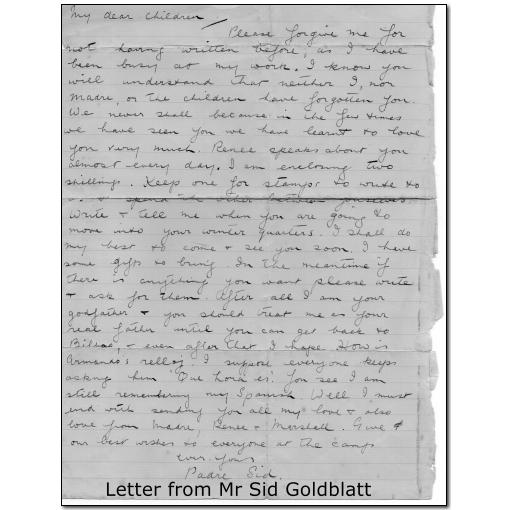 My dear Children
Please forgive me for
not having written before, as I have
been busy at my work. I know you
will understand that neither I, nor
Madre, or the children have forgotten you.
We never shall because in the few times
we have seen you we have learnt to love
you very much. Renee speaks about you
almost every day. I am enclosing two
shillings. Keep one for stamps to write to
& spend the other between yourselves.
Write & tell me when you are going to
move into your winter quarters. I shall do
my best to come & see you soon. I have
some gifts to bring. In the meantime if
there is anything you want please write
& ask for them. After all I am your
godfather & you should treat me as your
real father until you can get back to
Bilbao, & even after that I hope. How is
Armando's relloj. I suppose everyone keeps
asking him 'Que hora es'. You see I am
still remembering my Spanish. Well I must
end with sending you all my love & also
love from Madre, Renee & Marshall. Give
our best wishes to everyone at the camp
ever yours
Padre Sid.
Letter from Mr Sid Goldblatt